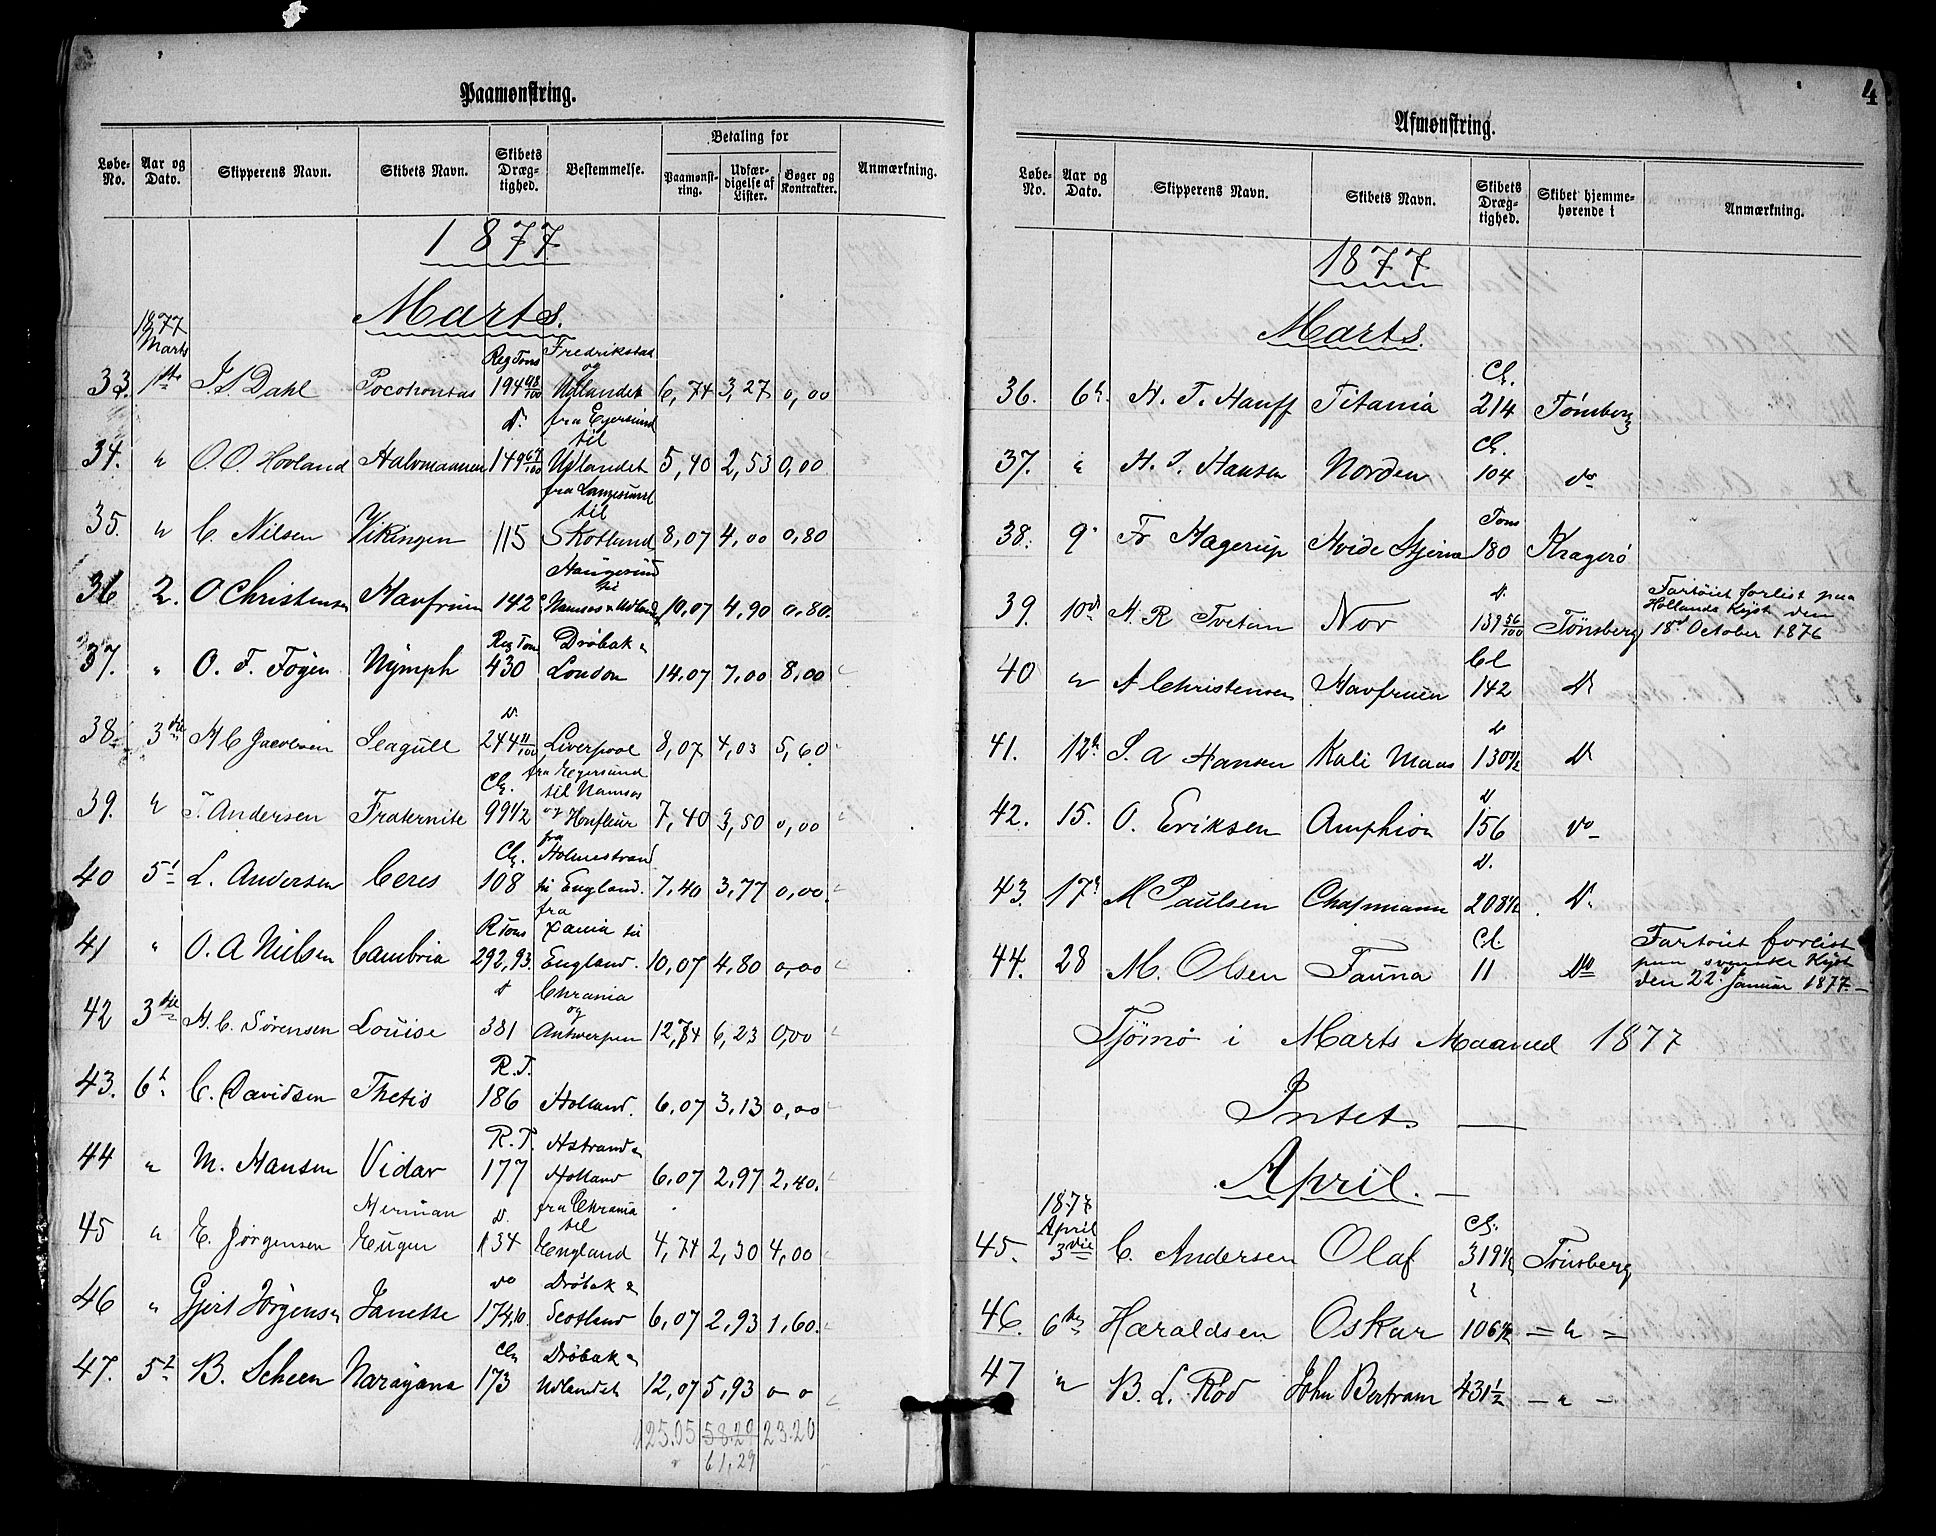 Paamønstring.
Løbe-No. Aar og Dato. Skipperens Navn. Skibets Navn. Skibets Dræg-tighed. Bestemmelse. Betaling for Paamønst-ring. Udfær-digelse af Lister. Bøger og Kontrakter. Anmærkning.
1877
Marts.
1877 Marts
Reg Tons Fredrikstad og
33. 1ste J. S. Dahl Pocohontas 194 98/100 Udlandet 6,74 3,27 0,00
do fra Egersund til
34. " O. O. Hovland Halvmaanen 149 67/100 Udlandet 5,40 2,53 0,00
fra Langesund til
35. " C. Nilsen Vikingen 115 Skotland 8,07 4,00 0,80
Haugesund til
36 2. O Christensen Havfruen 142 Namsos & Udland 10,07 4,90 0,80.
Reg Tons Drøbak "
37. " O. F. Føyen Nymph 430 London 14,07 7,00 8,00
do
38. 3die H C Jacobsen Seagull 244 11/100 Liverpool 8,07 4,03 5,60
Cl. fra Egersund til Namsos
39. " T. Andersen Fraternite 99 1/2 og Honfleur 7,40 3,50 0,00
Cl. fra Holmestrand
40 5t L. Andersen Ceres 108 til England. 7,40 3,77 0,00
R Tons fra
41 " O. A Nielsen Cambria 292,93. England. 10,07 4,80 0,00
do Chrania og
42 3die H. C. Sørensen Louise 381 Antwerpen 12,74 6,23 0,00
R. T.
43. 6t C. Davidsen Thetis 186 Holland. 6,07 3,13 0,00
R. T. Hstrand "
44 " M. Hansen Vidar 177 Holland 6,07 2,97 2,40.
Herman do fra Chrania til
45 " E. Jørgensen Eugen 134 England 4,74 2,30 4,00
do Drøbak "
46 " Gjert Jørgensen Janette 174,10 Scotland 6,07 2,93 1,60.
Cl. Drøbak "
47. 5t B. Scheen Narayana 173 Udlandet 12,07 5,93 0 0
125.05 58.29 23.20
61,29
4
Afmønstring.
Løbe-No. Aar og Dato. Skipperens Navn. Skibets Navn. Skibets Dræg-tighed. Skibet hjemme-hørende i Anmærkning.
1877
Marts.
Cl.
36. 6t H. T. Hauff Titania 214 Tønsberg
Cl.
37. " H. J. Hansen Norden 104 do
Tons
38. 9. Fr Hagerup Hvide Stjerne 180 Kragerö
do Fartöiet forlist paa Hollands Kyst den
39. 10d H. R Tvetan Nor 139 56/100 Tönsberg 18d October 1876
Cl
40 " A Christensen Havfruen 142 do
do
41. 12t S. A Hansen Kali Maas 130 1/2 do
do
42. 15. O. Eriksen Amphion 156 do
do
43. 17d M Paulsen Chapmann 208 1/2 do
Cl. Fartöiet forlist paa svenske Kyst
44. 28 M. Olsen Fauna 11 do den 22d Januar 1877.
Tjömö i Marts Maaned 1877
Intet.
April.
1877 April Cl.
45. 3die C. Andersen Olaf 319 1/2 Tönsberg
"
46. 6te Haraldsen Oskar 106 1/2 — " —
47 " B. L. Röd John Bertram 431 1/2 — " —